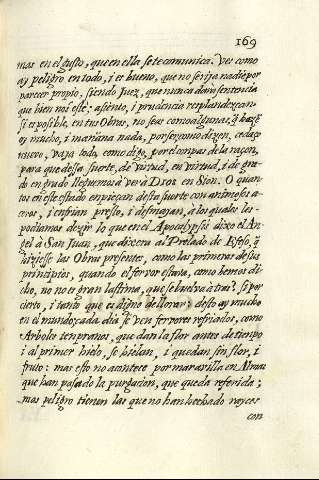 169
mas en el gusto, que en ella se te comunica. Ves como
ay peligro en todo, i es bueno, que no se rija nadie por
parecer propio, siendo Juez, que nunca dara sentencia
que bien no i este; asiento, i prudencia resplandezcan
si es posible, en tus Obras, no seas como algunas, q̃ hazẽ
oy mucho, i mañana nada, por ser como dizen, cedazo
nuevo, vaya todo, como digo, por el compas de la razon,
para que desta suerte, de virtud, en virtud, i de gra-
do en grado lleguemos à ver à Dios en Sion. O quan-
tos en este estado empieçan desta suerte con animosos a-
ceros, i enfrian presto, i desmayan, à los quales les
podiamos dezir lo que en el Apocalypsis dixo el An-
gel à San Juan, que dixera al Prelado de Efeso, q̃
hiziesse las Obras presentes, como las primeras de sus
principios, quando el fervor estava, como hemos di-
cho, no no es gran lastima, que se buelva à tras? si por
cierto, i tanto que es digno de llorar; desto ay mucho
en el mundo; cada dia se ven fervores resfriados, como
Arboles tempranos, que dan la flor antes de tiempo
i al primer hielo, se hielan, i quedan sin flor, i
fruto: mas esto no acontece por maravilla en Almas
que han pasado la purgacion, que queda referida;
mas peligro tienen las que no han hechado rayces
con